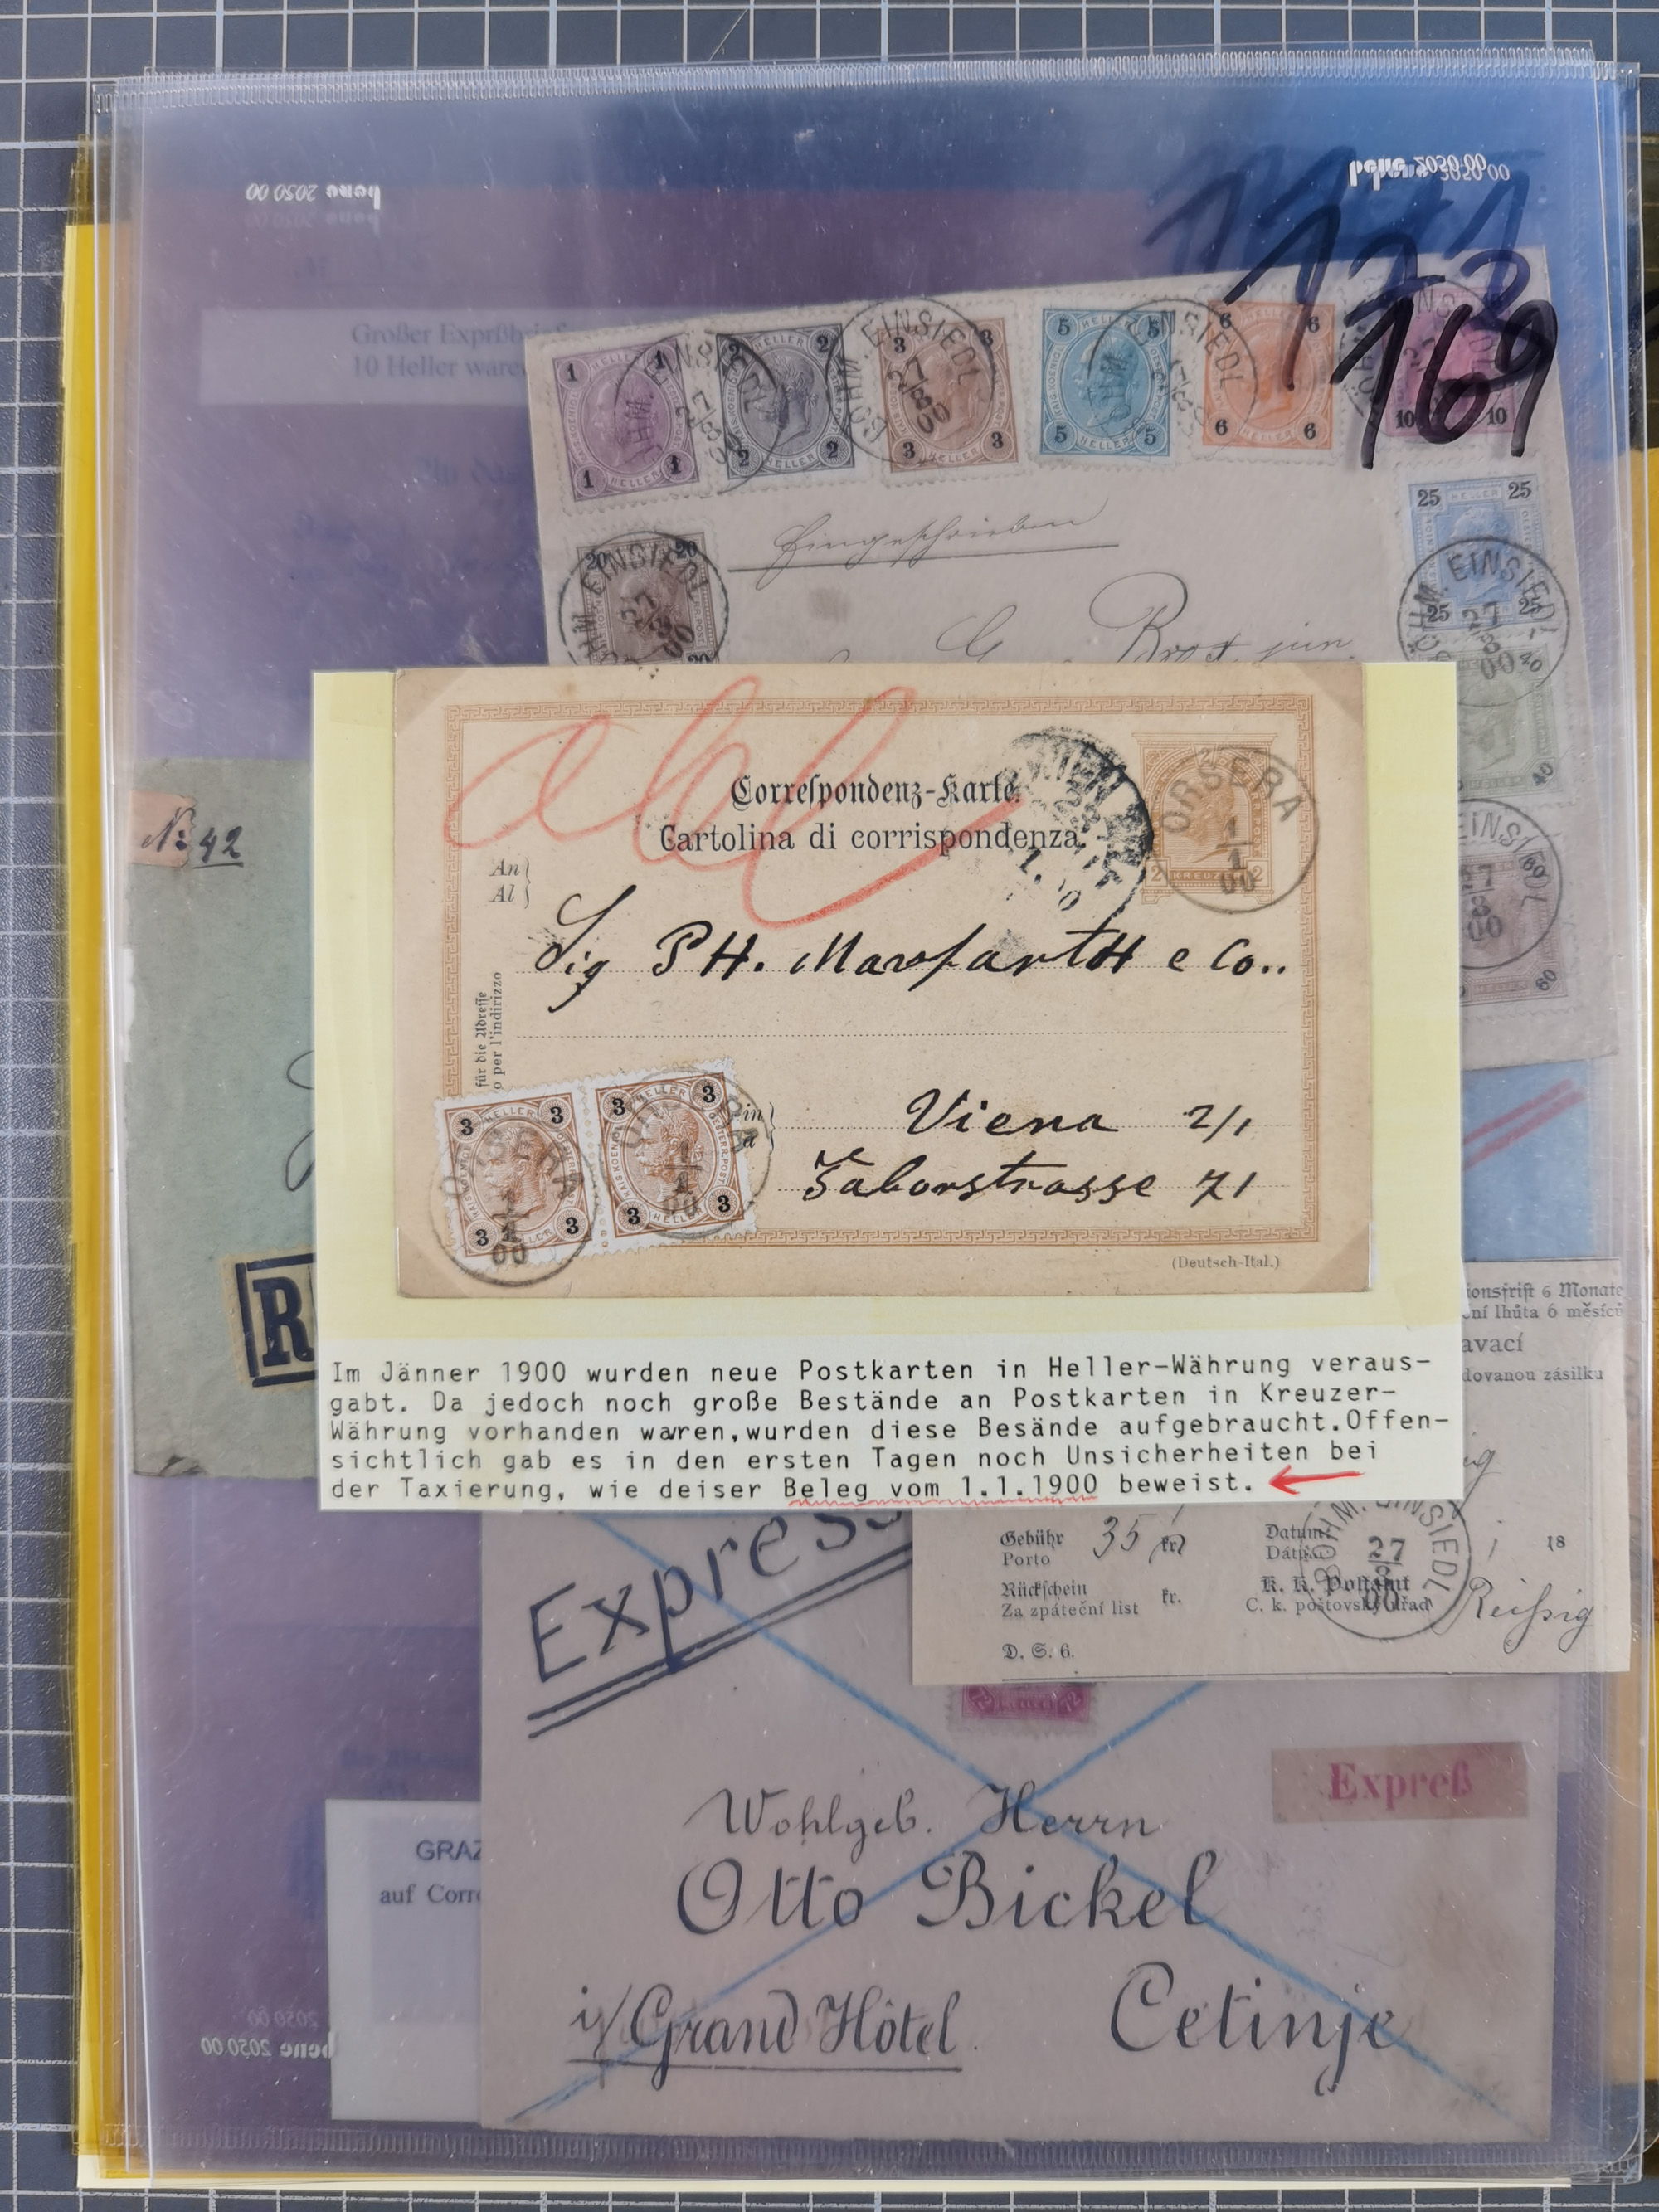 bene 2050 00
bene 2050 00
169
Großer Expreßbrief
10 Heller waren
1 HELLER 1
2 HELLER 2
3 HELLER 3
5 HELLER 5
6 HELLER 6
10 10
BÖHM. EINSIEDL
27/3 00
25 HELLER 25
20 20
Eingeschrieben
40
60
No 42
R
Correspondenz-Karte.
Cartolina di corrispondenza.
2 KREUZER 2
ORSERA
1/1 00
WIEN
An
Al
Sig PH. Mayfarth e Co..
für die Adresse
o per l'indirizzo
in
a
Viena 2/1
Taborstrasse 71
3 HELLER 3
3 HELLER 3
ORSERA
1/1 00
(Deutsch-Ital.)
Im Jänner 1900 wurden neue Postkarten in Heller-Währung veraus-
gabt. Da jedoch noch große Bestände an Postkarten in Kreuzer-
Währung vorhanden waren,wurden diese Besände aufgebraucht.Offen-
sichtlich gab es in den ersten Tagen noch Unsicherheiten bei
der Taxierung, wie deiser Beleg vom 1.1.1900 beweist.
ionsfrist 6 Monate
ení lhůta 6 měsíců
avací
dovanou zásilku
Gebühr
Porto
35 kr
Datum
18
Rückschein
Za zpáteční list
kr.
K. K. Postamt
C. k. poštovský úřad
Reissig
D. S. 6.
BÖHM. EINSIEDL
27/3 00
Express
Expreß
Wohlgeb. Herrn
Otto Bickel
i/Grand Hôtel
Cetinje
GRAZ
auf Corre
bene 2050 00